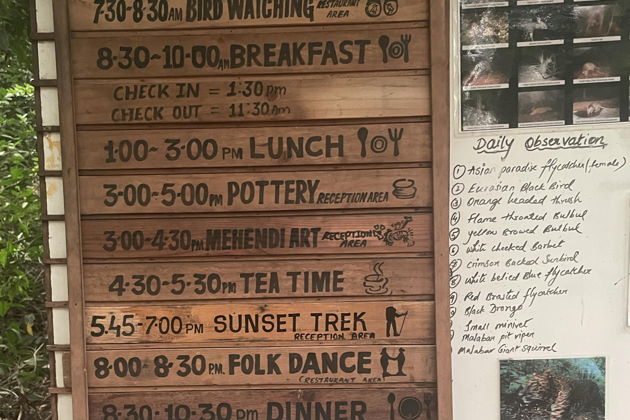 7.30-8.30AM BIRD WATCHING RESTAURANT AREA
8.30-10.00AM BREAKFAST
CHECK IN = 1:30 Pm
CHECK OUT = 11:30 Am
1.00- 3.00 PM LUNCH
3.00-5.00 PM POTTERY RECEPTION AREA
3.00-4.30 PM MEHENDI ART RECEPTION AREA
4.30-5.30 PM TEA TIME
5.45-7:00 PM SUNSET TREK
RECEPTION AREA
8.00- 8.30 PM. FOLK DANCE
(RESTAURANT AREA)
8.30-10.30 PM DINNER
Daily Observation
1 Asian paradise flycatcher (female)
2 Euratian Black Bird
3 Orange headed thrush
4 Flame throated Bulbul
5 yellow Browed Bulbul
6 White cheeked Barbet
7 Crimson Backed Sunbird
8 White belied Blue flycatcher
9 Red Brasted flycatcher
Black Drongo
Small minivel
Malabar pit viper
Malabar Giant squirrel